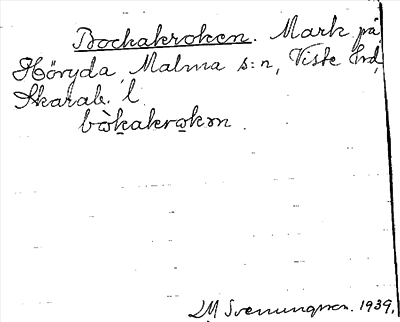 Bockakroken. Mark på
Höryda, Malma s:n, Viste hrd,
Skarab. l.
bòkakrokən.
LM Svenungsson. 1939.